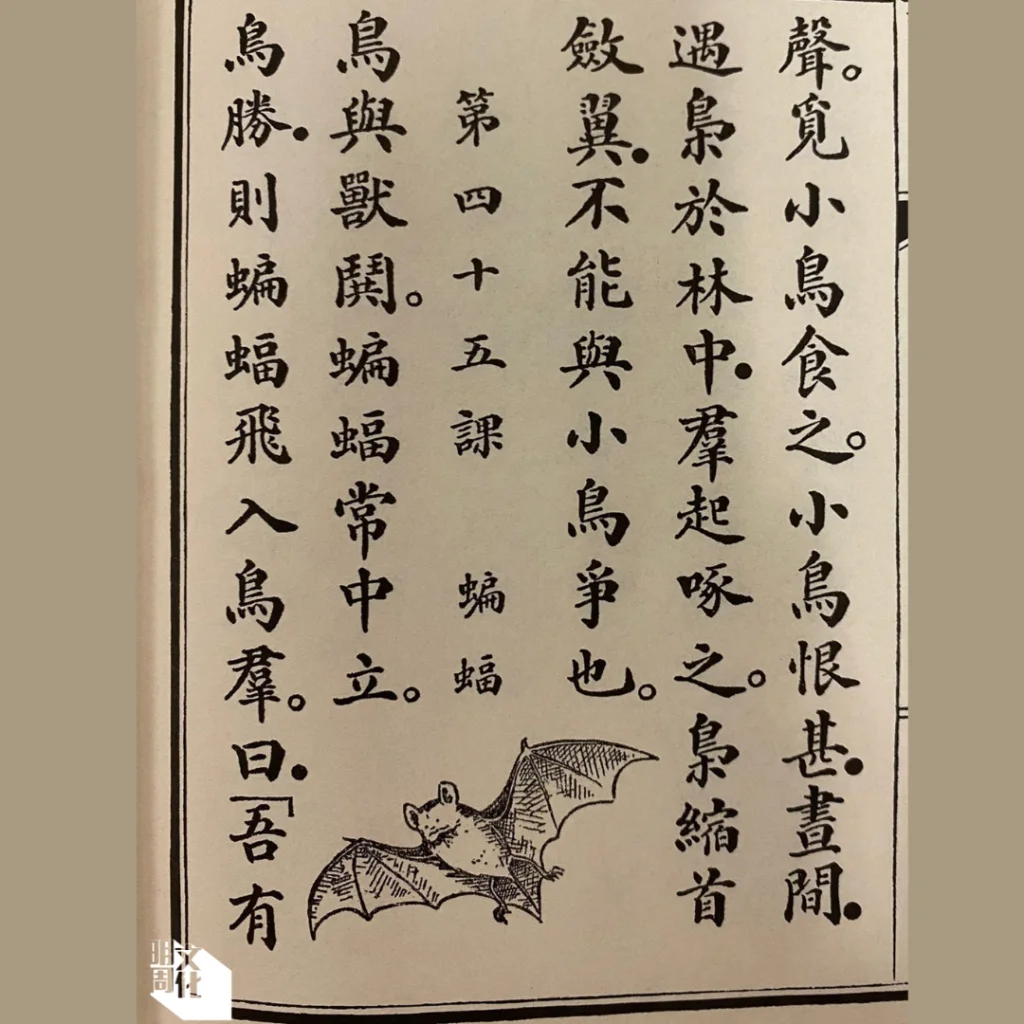 聲。覓小鳥食之。小鳥恨甚．晝間．
遇梟於林中．羣起啄之。梟縮首
斂翼．不能與小鳥爭也。
第四十五課　蝙蝠
鳥與獸鬭。蝙蝠常中立。
鳥勝．則蝙蝠飛入鳥羣。曰．「吾有
明周文化